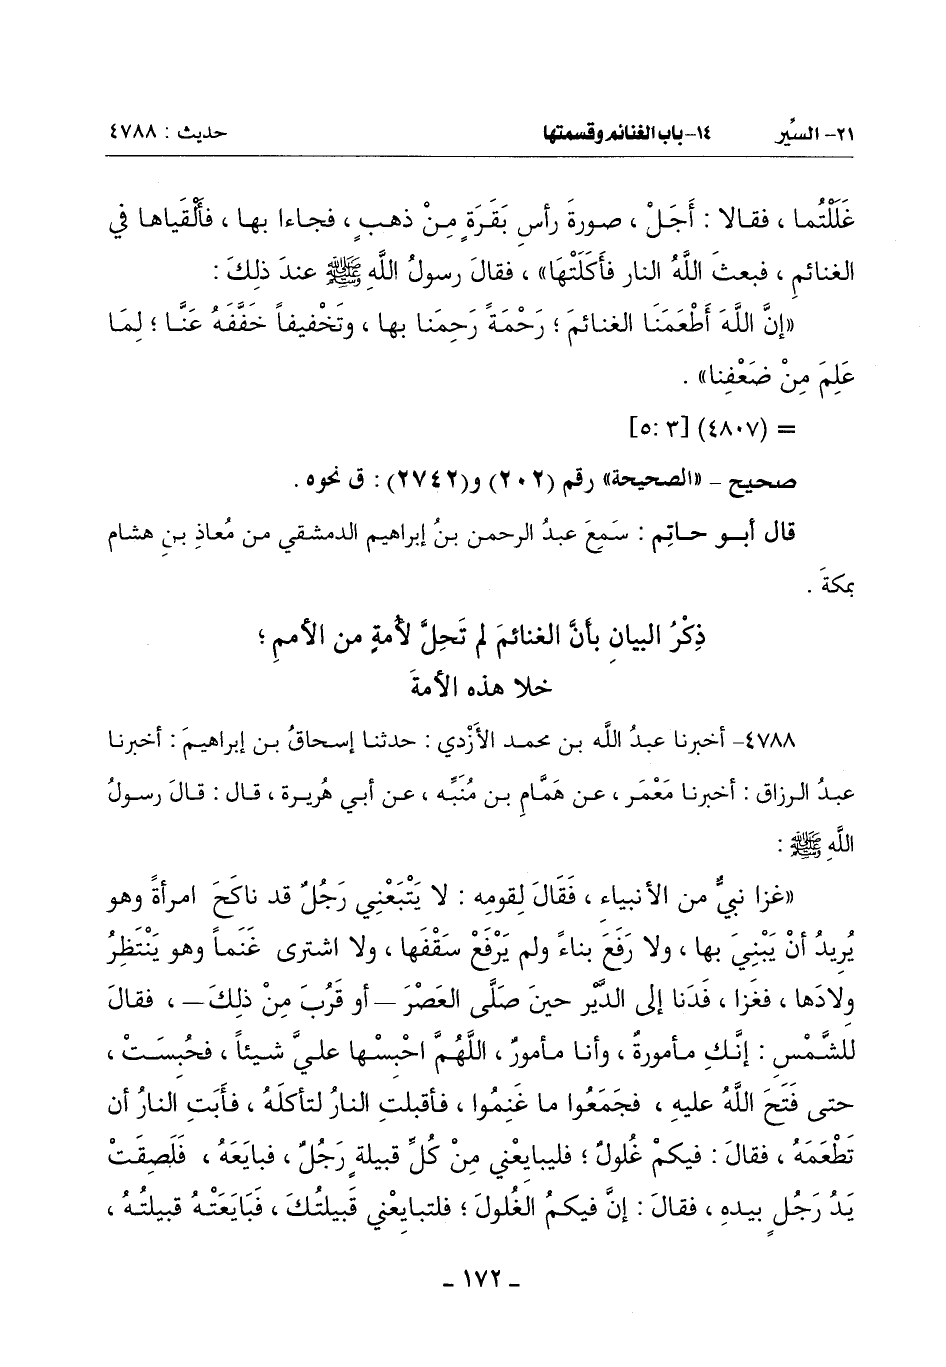 ٢١- السِّير ١٤-باب الغنائم وقسمتها حديث : ٤٧٨٨
غَلَلْتُما ، فقالا : أَجَلْ ، صورةَ رأسِ بَقَرَةٍ مِنْ ذهبٍ ، فجاءا بها ، فأَلْقَياها في
الغنائمِ ، فبعثَ اللَّهُ النار فأَكَلَتْهَا» ، فقالَ رسولُ اللَّهِ ﷺ عندَ ذلِكَ :
«إنَّ اللَّهَ أَطْعَمَنَا الغنائمَ ؛ رَحْمَةً رَحِمَنا بها ، وتَخْفيفاً خَفَّفَهُ عَنَّا ؛ لِمَا
عَلِمَ مِنْ ضَعْفِنا» .
= (٤٨٠٧) [٣ :٥]
صحيح – «الصحيحة» رقم (٢٠٢) و(٢٧٤٢) : ق نحوه .
قال أبـو حـاتِم : سَمِعَ عبدُ الرحمن بنُ إبراهيم الدمشقي من مُعاذِ بنِ هشام
بمكةَ .
ذِكْرُ البيانِ بأنَّ الغنائمَ لم تَحِلَّ لأُمةٍ من الأممِ ؛
خلا هذه الأمةَ
٤٧٨٨– أخبرنا عبدُ اللَّه بن محمد الأَزْدي : حدثنا إسحاقُ بن إبراهيمَ : أخبرنا
عبدُ الرزاق : أخبرنا مَعْمَر ، عن هَمَّامِ بن مُنَبِّه ، عن أبي هُريرة ، قال : قالَ رسولُ
اللَّهِ ﷺ :
«غزا نبيٌّ من الأنبياءِ ، فَقَالَ لِقومِه : لا يَتْبَعْنِي رَجُلٌ قد ناكَحَ امرأةً وهو
يُرِيدُ أنْ يَبْنِيَ بها ، ولا رَفَعَ بناءً ولم يَرْفَعْ سَقْفَها ، ولا اشترى غَنَماً وهو يَنْتَظِرُ
وِلادَها ، فغَزا ، فَدَنا إلى الدَّيْرِ حينَ صَلَّى العَصْرَ –أو قَرُبَ مِنْ ذلِكَ– ، فقالَ
لِلشَّمْسِ : إنَّكِ مأمورةٌ ، وأنا مأمورٌ ، اللَّهُمَّ احْبِسْها عليَّ شيئاً ، فحُبِسَتْ ،
حتى فَتَحَ اللَّهُ عليهِ ، فجَمَعُوا ما غَنِمُوا ، فأقبلتِ النارُ لتأكلَهُ ، فأَبَتِ النارُ أن
تَطْعَمَهُ ، فقالَ : فيكمْ غُلولٌ ؛ فليبايعْني مِنْ كُلِّ قبيلةٍ رَجُلٌ ، فبايَعَهُ ، فَلَصِقَتْ
يَدُ رَجُلٍ بيدِهِ ، فقالَ : إنَّ فيكمُ الغُلولَ ؛ فلتبايِعْني قَبيلتُكَ ، فَبَايَعَتْهُ قبيلتُهُ ،
ـ ١٧٢ ـ